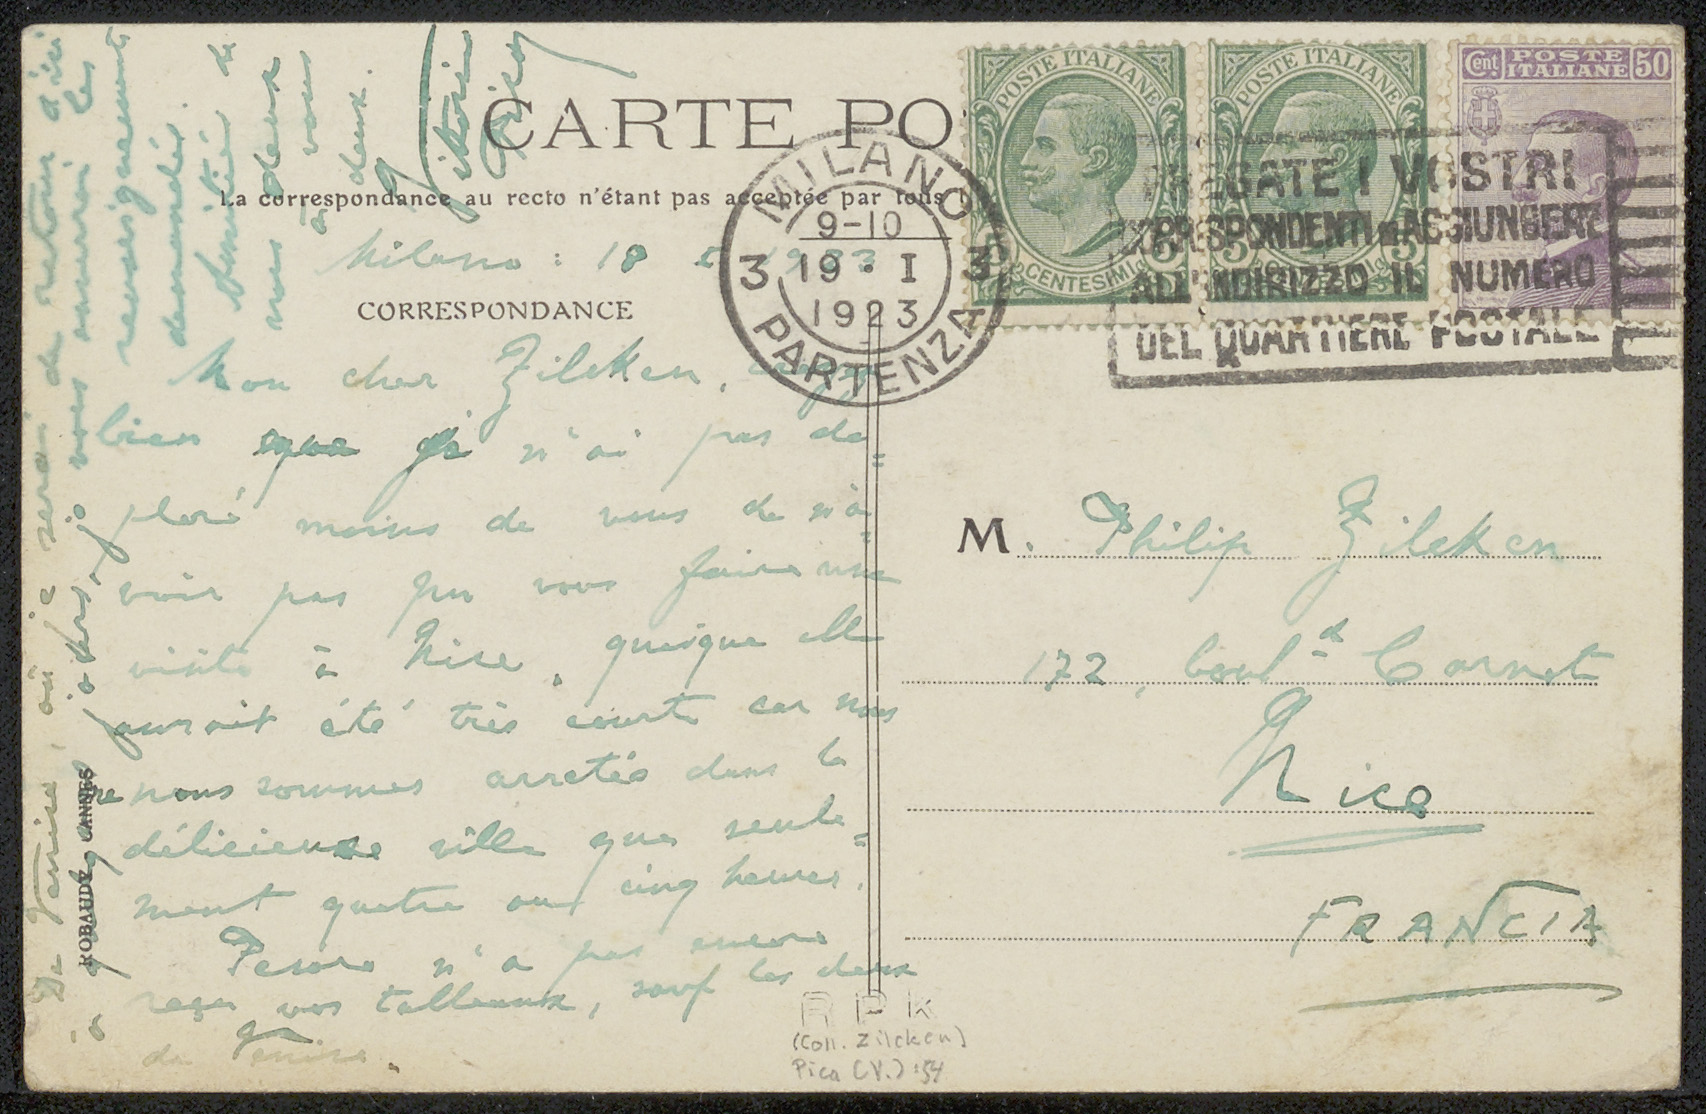 CARTE PO
La correspondance au recto n'étant pas acceptée par tous
CORRESPONDANCE
Milano : 18 1923
Mon cher Zilcken, croyez
bien que je n'ai pas dé=
ploré moins de vous de n'a=
voir pas pu vous faire une
visite à Nice, quoique elle
aurait été très courte car nous
ne nous sommes arretés dans la
délicieuse ville que seule=
ment quatre ou cinq heures.
Pesaro n'a pas encore
reçu vos tableaux, sauf les deux
de Venise.
De Venise, où je serai de retour d'ici
à quelques jours, je vous enverrai les
renseignements
demandés.
Amitiés de
nous deux
à vous
deux.
Vittorio
Pica
ROBAUDY, CANNES
MILANO
PARTENZA
9-10
3 19 · I 3
1923
POSTE ITALIANE
5 CENTESIMI 5
POSTE ITALIANE
5 5
Cent. POSTE ITALIANE 50
PREGATE I VOSTRI
CORRISPONDENTI AGGIUNGERE
ALL'INDIRIZZO IL NUMERO
DEL QUARTIERE POSTALE
M. Philip Zilcken
172, boul.d Carnot
Nice
FRANCIA
R P K
(Coll. Zilcken)
Pica (V.) :54